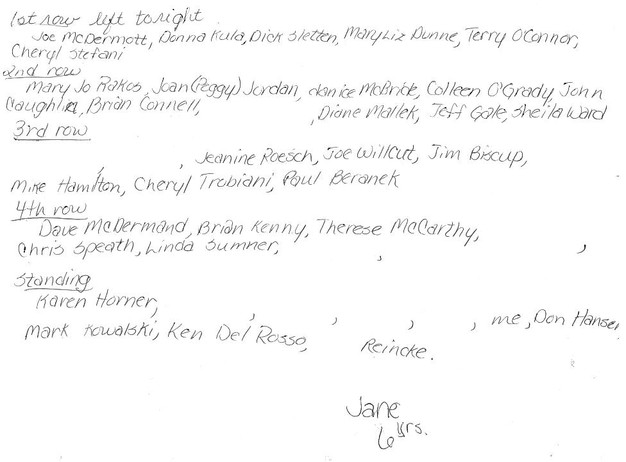 1st row left to right
Joe McDermott, Donna Kula, Dick Sletten, Mary Liz Dunne, Terry O'Connor,
Cheryl Stefani
2nd row
Mary Jo Rakos, Joan (Peggy) Jordan, Janice McBride, Colleen O'Grady, John
Caughlin, Brian Connell, , Diane Mallek, Jeff Gale, Sheila Ward
3rd row
, , Jeanine Roesch, Joe Willcut, Jim Biscup,
Mike Hamilton, Cheryl Trobiani, Paul Beranek
4th row
Dave McDermand, Brian Kenny, Therese McCarthy,
Chris Speath, Linda Sumner, , ,
Standing
Karen Horner, , , , , me, Don Hansen
Mark Kowalski, Ken Del Rosso, Reincke.
Jane
6 yrs.